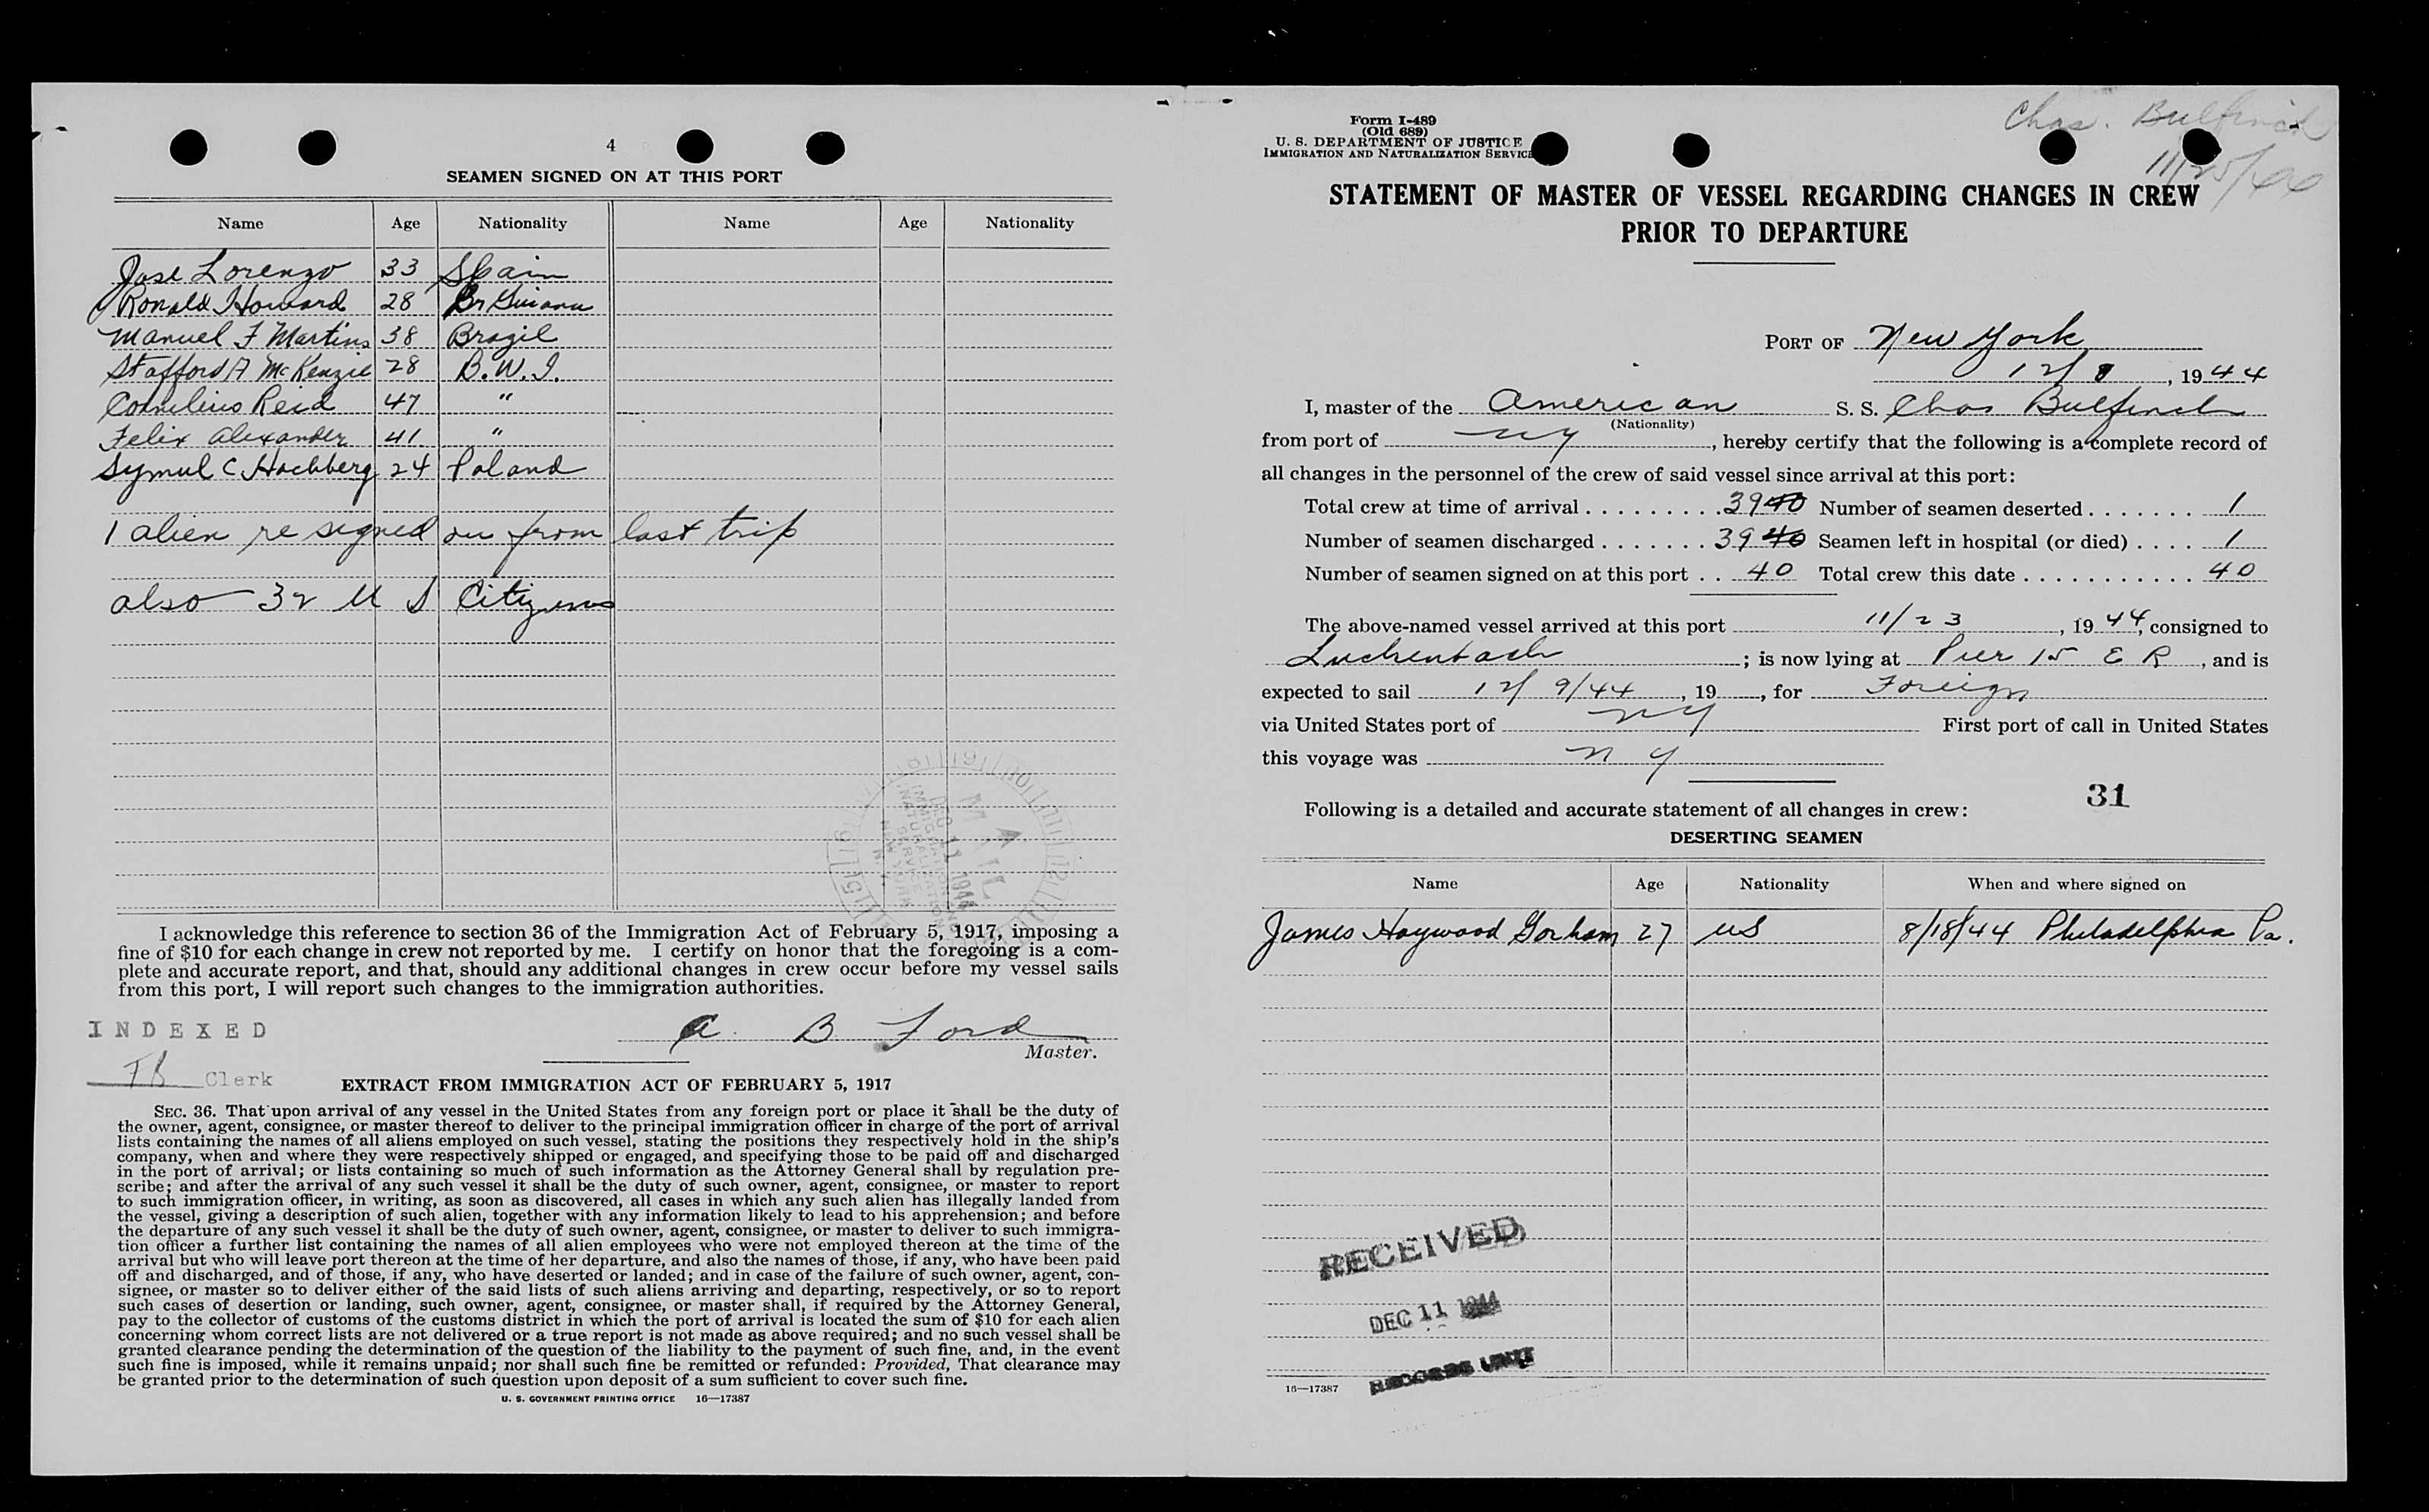 4
SEAMEN SIGNED ON AT THIS PORT
Name Age Nationality Name Age Nationality
Jose Lorenzo 33 Spain
Ronald Howard 28 Br Guiana
Manuel F Martins 38 Brazil
Stafford A McKenzie 28 B.W.I.
Cornelius Reid 47 "
Felix Alexander 41 "
Symul C Hochberg 24 Poland
1 alien re signed on from last trip
also 32 U S Citizens
MAIL
DEC 11 1944
IMMIGRATION
NATURALIZATION
SERVICE
NEW YORK
N.Y.
I acknowledge this reference to section 36 of the Immigration Act of February 5, 1917, imposing a
fine of $10 for each change in crew not reported by me. I certify on honor that the foregoing is a com-
plete and accurate report, and that, should any additional changes in crew occur before my vessel sails
from this port, I will report such changes to the immigration authorities.
INDEXED
A. B Ford
Master.
Clerk
EXTRACT FROM IMMIGRATION ACT OF FEBRUARY 5, 1917
SEC. 36. That upon arrival of any vessel in the United States from any foreign port or place it shall be the duty of
the owner, agent, consignee, or master thereof to deliver to the principal immigration officer in charge of the port of arrival
lists containing the names of all aliens employed on such vessel, stating the positions they respectively hold in the ship's
company, when and where they were respectively shipped or engaged, and specifying those to be paid off and discharged
in the port of arrival; or lists containing so much of such information as the Attorney General shall by regulation pre-
scribe; and after the arrival of any such vessel it shall be the duty of such owner, agent, consignee, or master to report
to such immigration officer, in writing, as soon as discovered, all cases in which any such alien has illegally landed from
the vessel, giving a description of such alien, together with any information likely to lead to his apprehension; and before
the departure of any such vessel it shall be the duty of such owner, agent, consignee, or master to deliver to such immigra-
tion officer a further list containing the names of all alien employees who were not employed thereon at the time of the
arrival but who will leave port thereon at the time of her departure, and also the names of those, if any, who have been paid
off and discharged, and of those, if any, who have deserted or landed; and in case of the failure of such owner, agent, con-
signee, or master so to deliver either of the said lists of such aliens arriving and departing, respectively, or so to report
such cases of desertion or landing, such owner, agent, consignee, or master shall, if required by the Attorney General,
pay to the collector of customs of the customs district in which the port of arrival is located the sum of $10 for each alien
concerning whom correct lists are not delivered or a true report is not made as above required; and no such vessel shall be
granted clearance pending the determination of the question of the liability to the payment of such fine, and, in the event
such fine is imposed, while it remains unpaid; nor shall such fine be remitted or refunded: Provided, That clearance may
be granted prior to the determination of such question upon deposit of a sum sufficient to cover such fine.
U. S. GOVERNMENT PRINTING OFFICE 16—17387
Form I-489
(Old 689)
U. S. DEPARTMENT OF JUSTICE
IMMIGRATION AND NATURALIZATION SERVICE
Chas. Bulfinch
STATEMENT OF MASTER OF VESSEL REGARDING CHANGES IN CREW
PRIOR TO DEPARTURE
PORT OF New York
12/8, 1944
I, master of the American S. S. Chas Bulfinch
(Nationality)
from port of NY, hereby certify that the following is a complete record of
all changes in the personnel of the crew of said vessel since arrival at this port:
Total crew at time of arrival 39 40 Number of seamen deserted 1
Number of seamen discharged 39 40 Seamen left in hospital (or died) 1
Number of seamen signed on at this port 40 Total crew this date 40
The above-named vessel arrived at this port 11/23, 1944, consigned to
Luckenbach; is now lying at Pier 15 E R, and is
expected to sail 12/9/44, 19, for Foreign
via United States port of NY First port of call in United States
this voyage was NY
31
Following is a detailed and accurate statement of all changes in crew:
DESERTING SEAMEN
Name Age Nationality When and where signed on
James Haywood Gorham 27 US 8/18/44 Philadelphia Pa.
RECEIVED
DEC 11 1944
RECORDS UNIT
16—17387